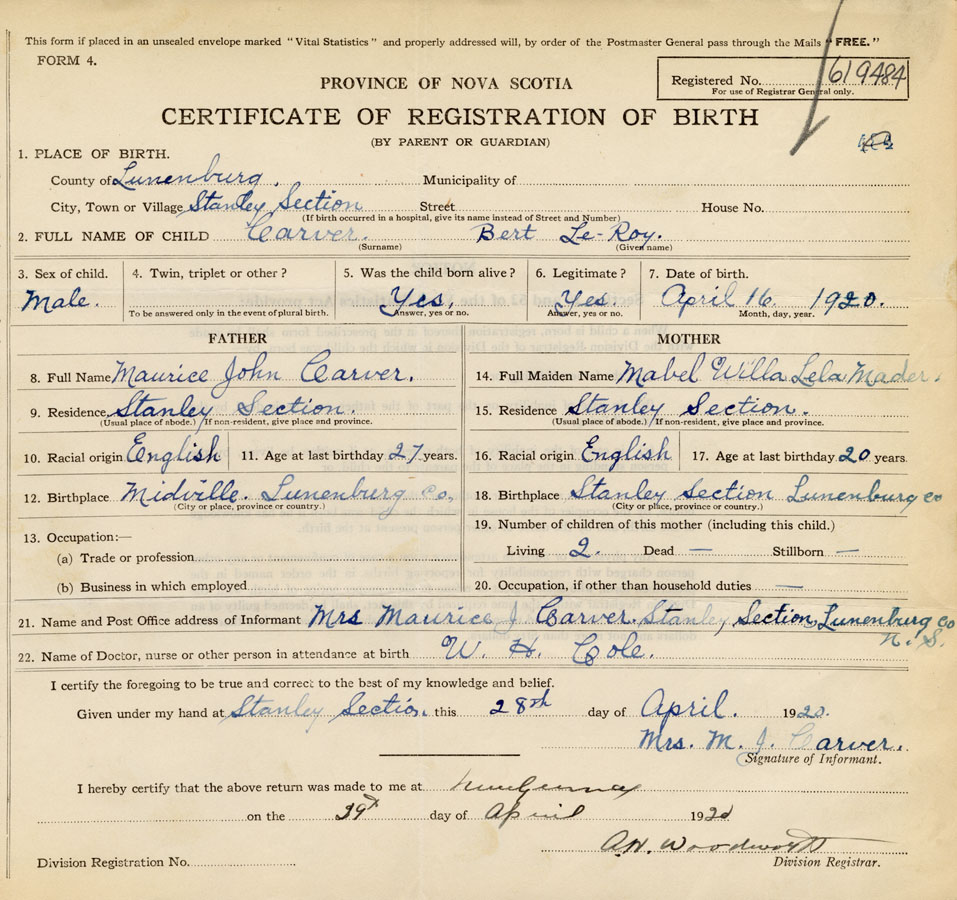 This form if placed in an unsealed envelope marked "Vital Statistics" and properly addressed will, by order of the Postmaster General pass through the Mails "FREE."
FORM 4.
PROVINCE OF NOVA SCOTIA
Registered No. 619484
For use of Registrar General only.
CERTIFICATE OF REGISTRATION OF BIRTH
(BY PARENT OR GUARDIAN)
1. PLACE OF BIRTH.
County of Lunenburg. Municipality of
City, Town or Village Stanley Section Street House No.
(If birth occurred in a hospital, give its name instead of Street and Number)
2. FULL NAME OF CHILD Carver. Bert Le-Roy.
(Surname) (Given name)
3. Sex of child. 4. Twin, triplet or other? 5. Was the child born alive? 6. Legitimate? 7. Date of birth.
Male. Yes, Yes. April 16. 1920.
To be answered only in the event of plural birth. Answer, yes or no. Answer, yes or no. Month, day, year.
FATHER MOTHER
8. Full Name Maurice John Carver. 14. Full Maiden Name Mabel Willa Lela Mader.
9. Residence, Stanley Section. 15. Residence Stanley Section.
(Usual place of abode.) If non-resident, give place and province. (Usual place of abode.) If non-resident, give place and province.
10. Racial origin English 11. Age at last birthday 27 years. 16. Racial origin English 17. Age at last birthday 20 years.
12. Birthplace Midville. Lunenburg Co, 18. Birthplace Stanley Section Lunenburg co
(City or place, province or country.) (City or place, province or country.)
13. Occupation:— 19. Number of children of this mother (including this child.)
(a) Trade or profession Living 2. Dead — Stillborn —
(b) Business in which employed 20. Occupation, if other than household duties —
21. Name and Post Office address of Informant Mrs Maurice J Carver. Stanley Section, Lunenburg Co
N. S.
22. Name of Doctor, nurse or other person in attendance at birth W. H. Cole.
I certify the foregoing to be true and correct to the best of my knowledge and belief.
Given under my hand at Stanley Section this 28th day of April. 1920.
Mrs. M. J. Carver.
Signature of Informant.
I hereby certify that the above return was made to me at
on the 29th day of April 1920
A.H. Woodworth
Division Registration No. Division Registrar.